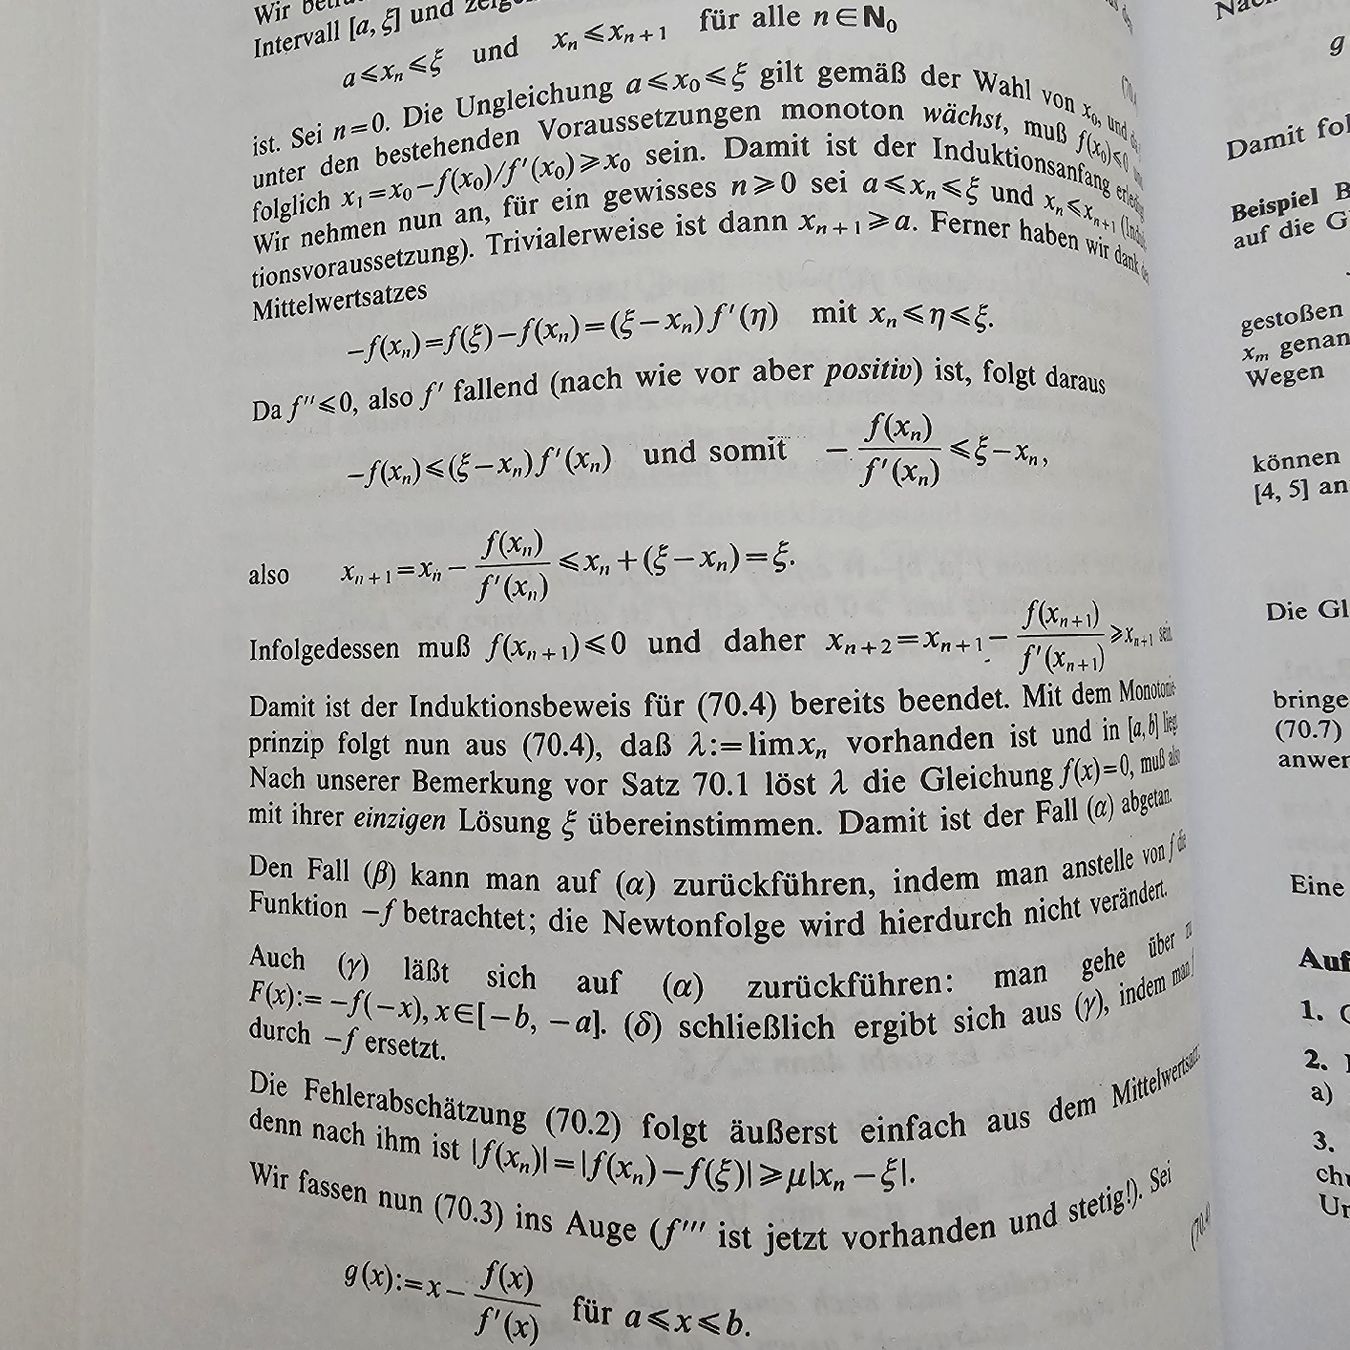 Wir
Intervall [a, ξ] und
a⩽xₙ⩽ξ und xₙ⩽xₙ₊₁ für alle n∈N₀
ist. Sei n=0. Die Ungleichung a⩽x₀⩽ξ gilt gemäß der Wahl von x₀, und
unter den bestehenden Voraussetzungen monoton wächst, muß f(x₀)⩽0
folglich x₁=x₀−f(x₀)/f′(x₀)⩾x₀ sein. Damit ist der Induktionsanfang
Wir nehmen nun an, für ein gewisses n⩾0 sei a⩽xₙ⩽ξ und xₙ⩽xₙ₊₁
tionsvoraussetzung). Trivialerweise ist dann xₙ₊₁⩾a. Ferner haben wir dank
Mittelwertsatzes
−f(xₙ)=f(ξ)−f(xₙ)=(ξ−xₙ)f′(η) mit xₙ⩽η⩽ξ.
Da f″⩽0, also f′ fallend (nach wie vor aber positiv) ist, folgt daraus
−f(xₙ)⩽(ξ−xₙ)f′(xₙ) und somit −f(xₙ)/f′(xₙ)⩽ξ−xₙ,
also xₙ₊₁=xₙ−f(xₙ)/f′(xₙ)⩽xₙ+(ξ−xₙ)=ξ.
Infolgedessen muß f(xₙ₊₁)⩽0 und daher xₙ₊₂=xₙ₊₁−f(xₙ₊₁)/f′(xₙ₊₁)⩾xₙ₊₁ sein.
Damit ist der Induktionsbeweis für (70.4) bereits beendet. Mit dem Monotonie-
prinzip folgt nun aus (70.4), daß λ:=lim xₙ vorhanden ist und in [a, b] liegt
Nach unserer Bemerkung vor Satz 70.1 löst λ die Gleichung f(x)=0, muß also
mit ihrer einzigen Lösung ξ übereinstimmen. Damit ist der Fall (α) abgetan.
Den Fall (β) kann man auf (α) zurückführen, indem man anstelle von f die
Funktion −f betrachtet; die Newtonfolge wird hierdurch nicht verändert.
Auch (γ) läßt sich auf (α) zurückführen: man gehe über zu
F(x):= −f(−x), x∈[−b, −a]. (δ) schließlich ergibt sich aus (γ), indem man f
durch −f ersetzt.
Die Fehlerabschätzung (70.2) folgt äußerst einfach aus dem Mittelwertsatz:
denn nach ihm ist |f(xₙ)|=|f(xₙ)−f(ξ)|⩾μ|xₙ−ξ|.
Wir fassen nun (70.3) ins Auge (f‴ ist jetzt vorhanden und stetig!). Sei
g(x):=x−f(x)/f′(x) für a⩽x⩽b.
g
Damit fol
Beispiel B
auf die G
gestoßen
xₘ genan
Wegen
können
[4, 5] an
Die Gl
bringe
(70.7)
anwer
Eine
Auf
1.
2.
a)
3.